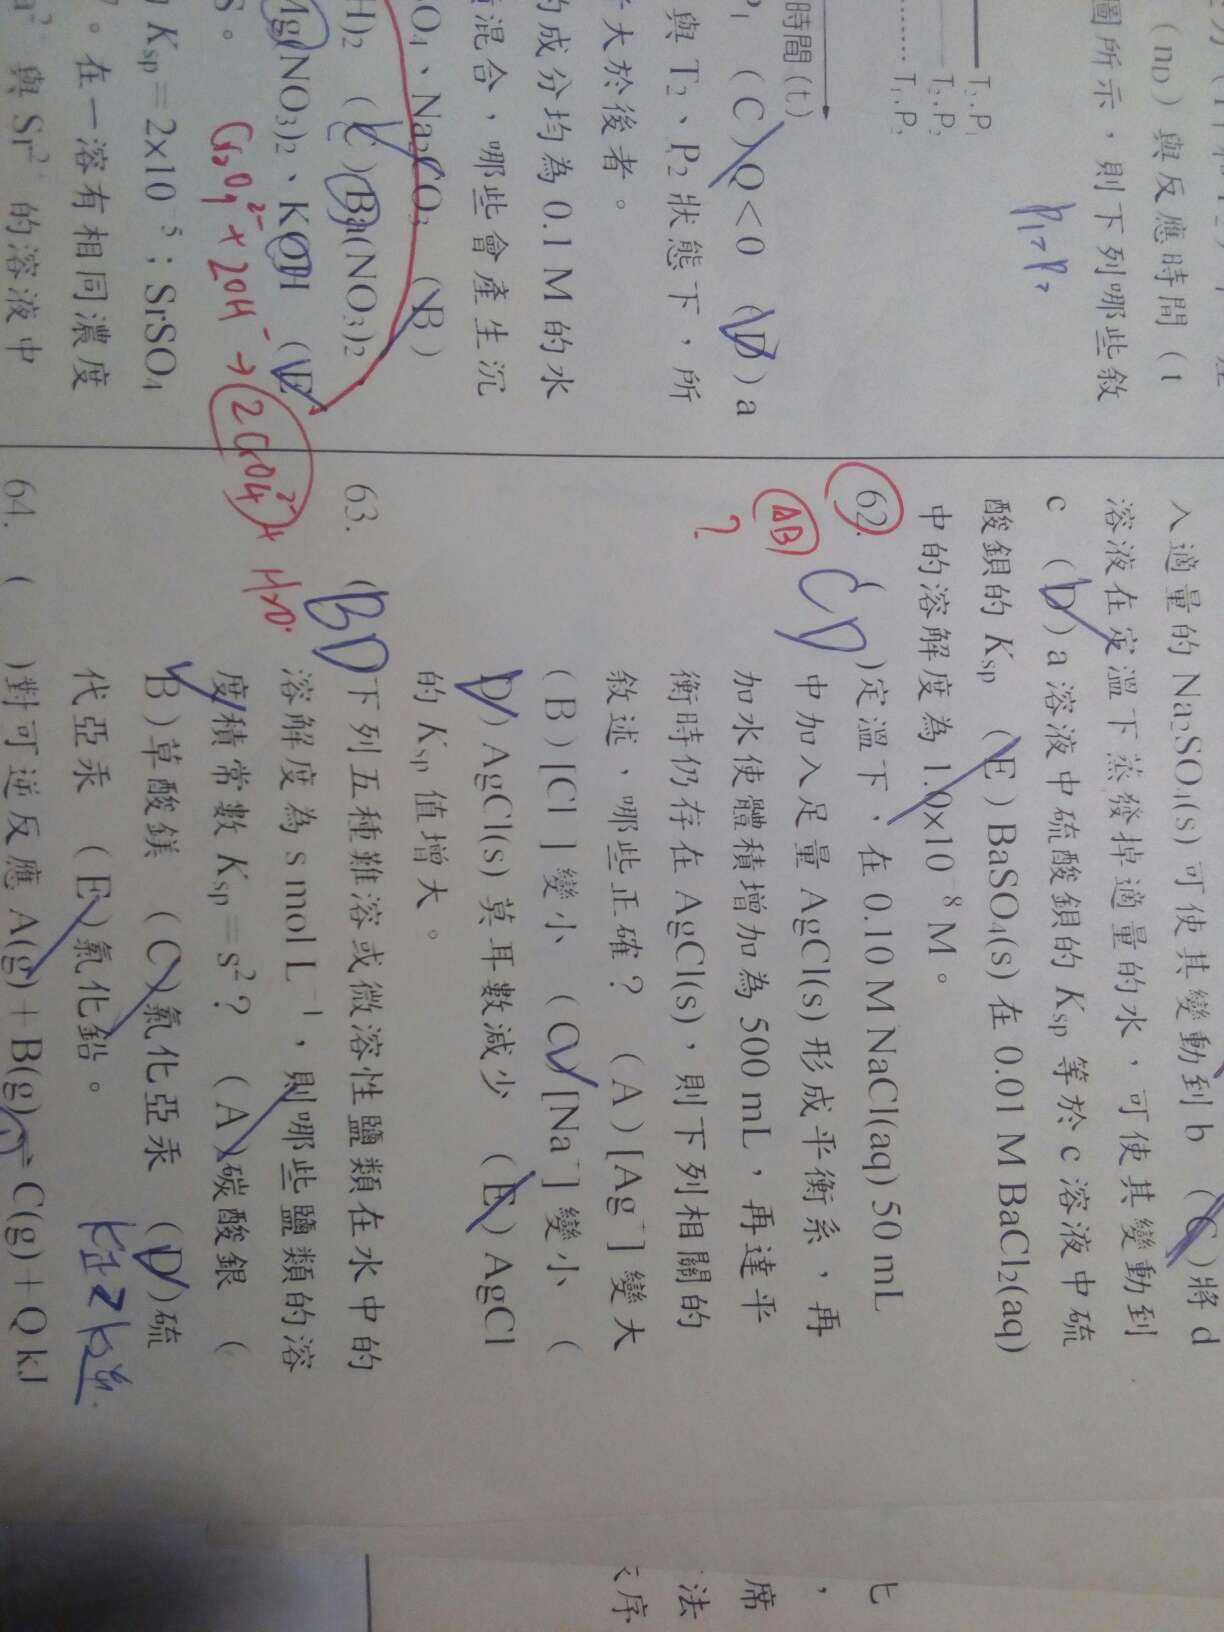 圖所示,則下列哪些敘
(nD)與反應時間(t
T₃,P₁
T₂,P₂
T₁,P₂
P₁>P₂
時間(t)
(C)Q<0 (D)a
與 T₂、P₂狀態下,所
大於後者。
的成分均為 0.1 M 的水
混合,哪些會產生沉
SO₄、Na₂CO₃ (B)
H)₂ (C)Ba(NO₃)₂、
Mg(NO₃)₂、KOH (E)
S。
Cr₂O₇²⁻+2OH⁻→2CrO₄²⁻+H₂O.
Ksp=2×10⁻⁵;SrSO₄
。在一溶有相同濃度
與 Sr²⁺ 的溶液中
入適量的 Na₂SO₄(s)可使其變動到 b (C)將 d
溶液在定溫下蒸發掉適量的水,可使其變動到
c (D)a 溶液中硫酸鋇的 Ksp 等於 c 溶液中硫
酸鋇的 Ksp (E)BaSO₄(s)在 0.01 M BaCl₂(aq)
中的溶解度為 1.0×10⁻⁸ M。
62. ( CD )定溫下,在 0.10 M NaCl(aq) 50 mL
AB
?
中加入足量 AgCl(s)形成平衡系,再
加水使體積增加為 500 mL,再達平
衡時仍存在 AgCl(s),則下列相關的
敘述,哪些正確? (A)[Ag⁺]變大
(B)[Cl⁻]變小 (C)[Na⁺]變小 (
D)AgCl(s)莫耳數減少 (E)AgCl
的 Ksp 值增大。
63. ( BD )下列五種難溶或微溶性鹽類在水中的
溶解度為 s mol L⁻¹,則哪些鹽類的溶
度積常數 Ksp=s²? (A)碳酸銀 (
B)草酸鎂 (C)氯化亞汞 (D)硫
代亞汞 (E)氯化鉛。
64. ( )對可逆反應 A(g)+B(g)⇌C(g)+Q kJ